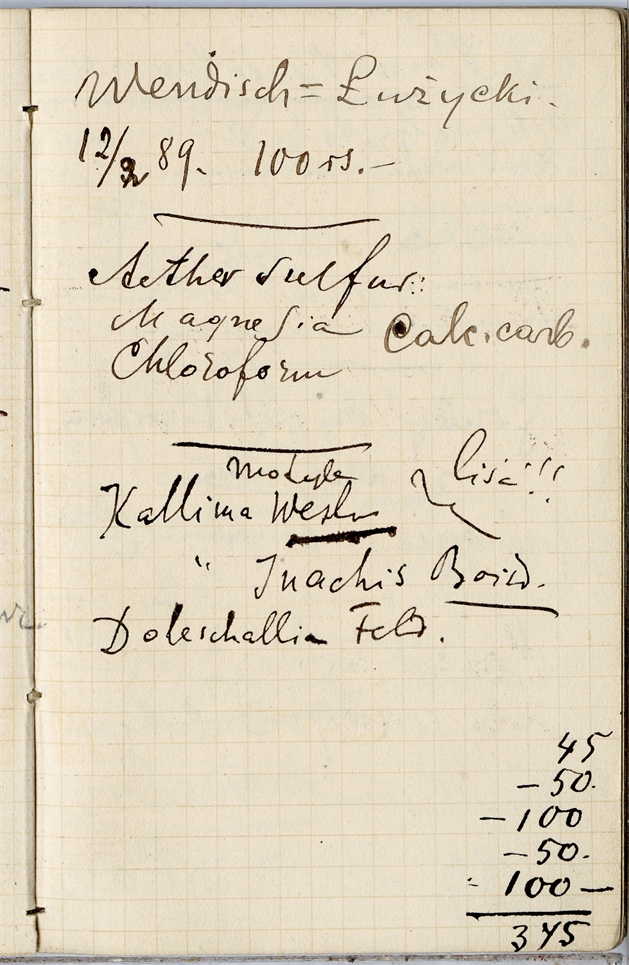 Wendisch = Łużycki.
12/2 89. 100 rs. –
Aether sulfur:
Magnesia Calc. carb.
Chloroform
motyle
Kallima Westw liść!!
" Inachis Boisd.
Doleschallia Feld.
45
– 50.
– 100
– 50.
100 –
345